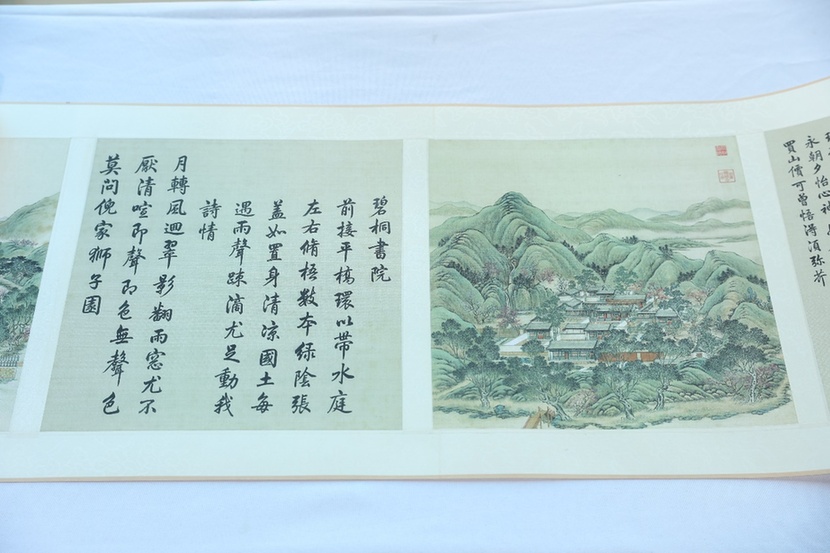 永朝夕怡心神
買山價可曾悟得須弥芥
碧桐書院
前接平橋環以帶水庭
左右脩梧數本綠陰張
蓋如置身清涼國土每
遇雨聲踈滴尤足動我
詩情
月轉風迴翠影翻雨窓尤不
厭清喧即聲即色無聲色
莫問倪家獅子園